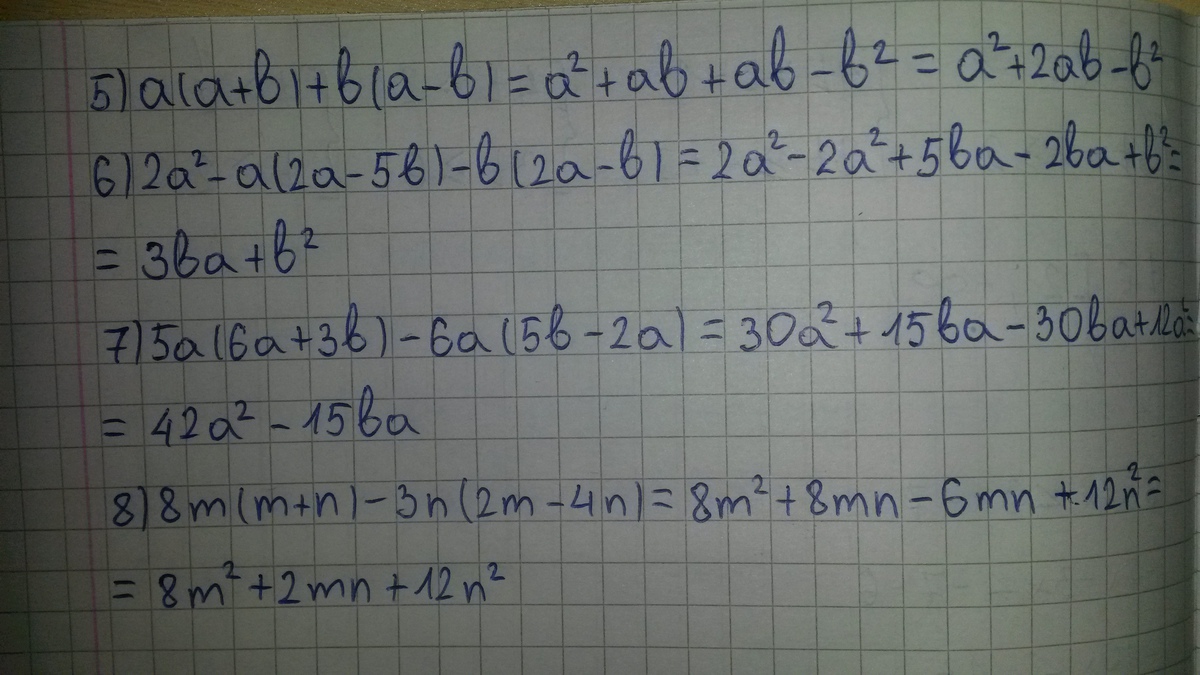 5) a(a+b)+b(a-b)=a²+ab+ab-b²=a²+2ab-b²
6) 2a²-a(2a-5b)-b(2a-b)=2a²-2a²+5ba-2ba+b²=
=3ba+b²
7) 5a(6a+3b)-6a(5b-2a)=30a²+15ba-30ba+12a²=
=42a²-15ba
8) 8m(m+n)-3n(2m-4n)=8m²+8mn-6mn+12n²=
=8m²+2mn+12n²